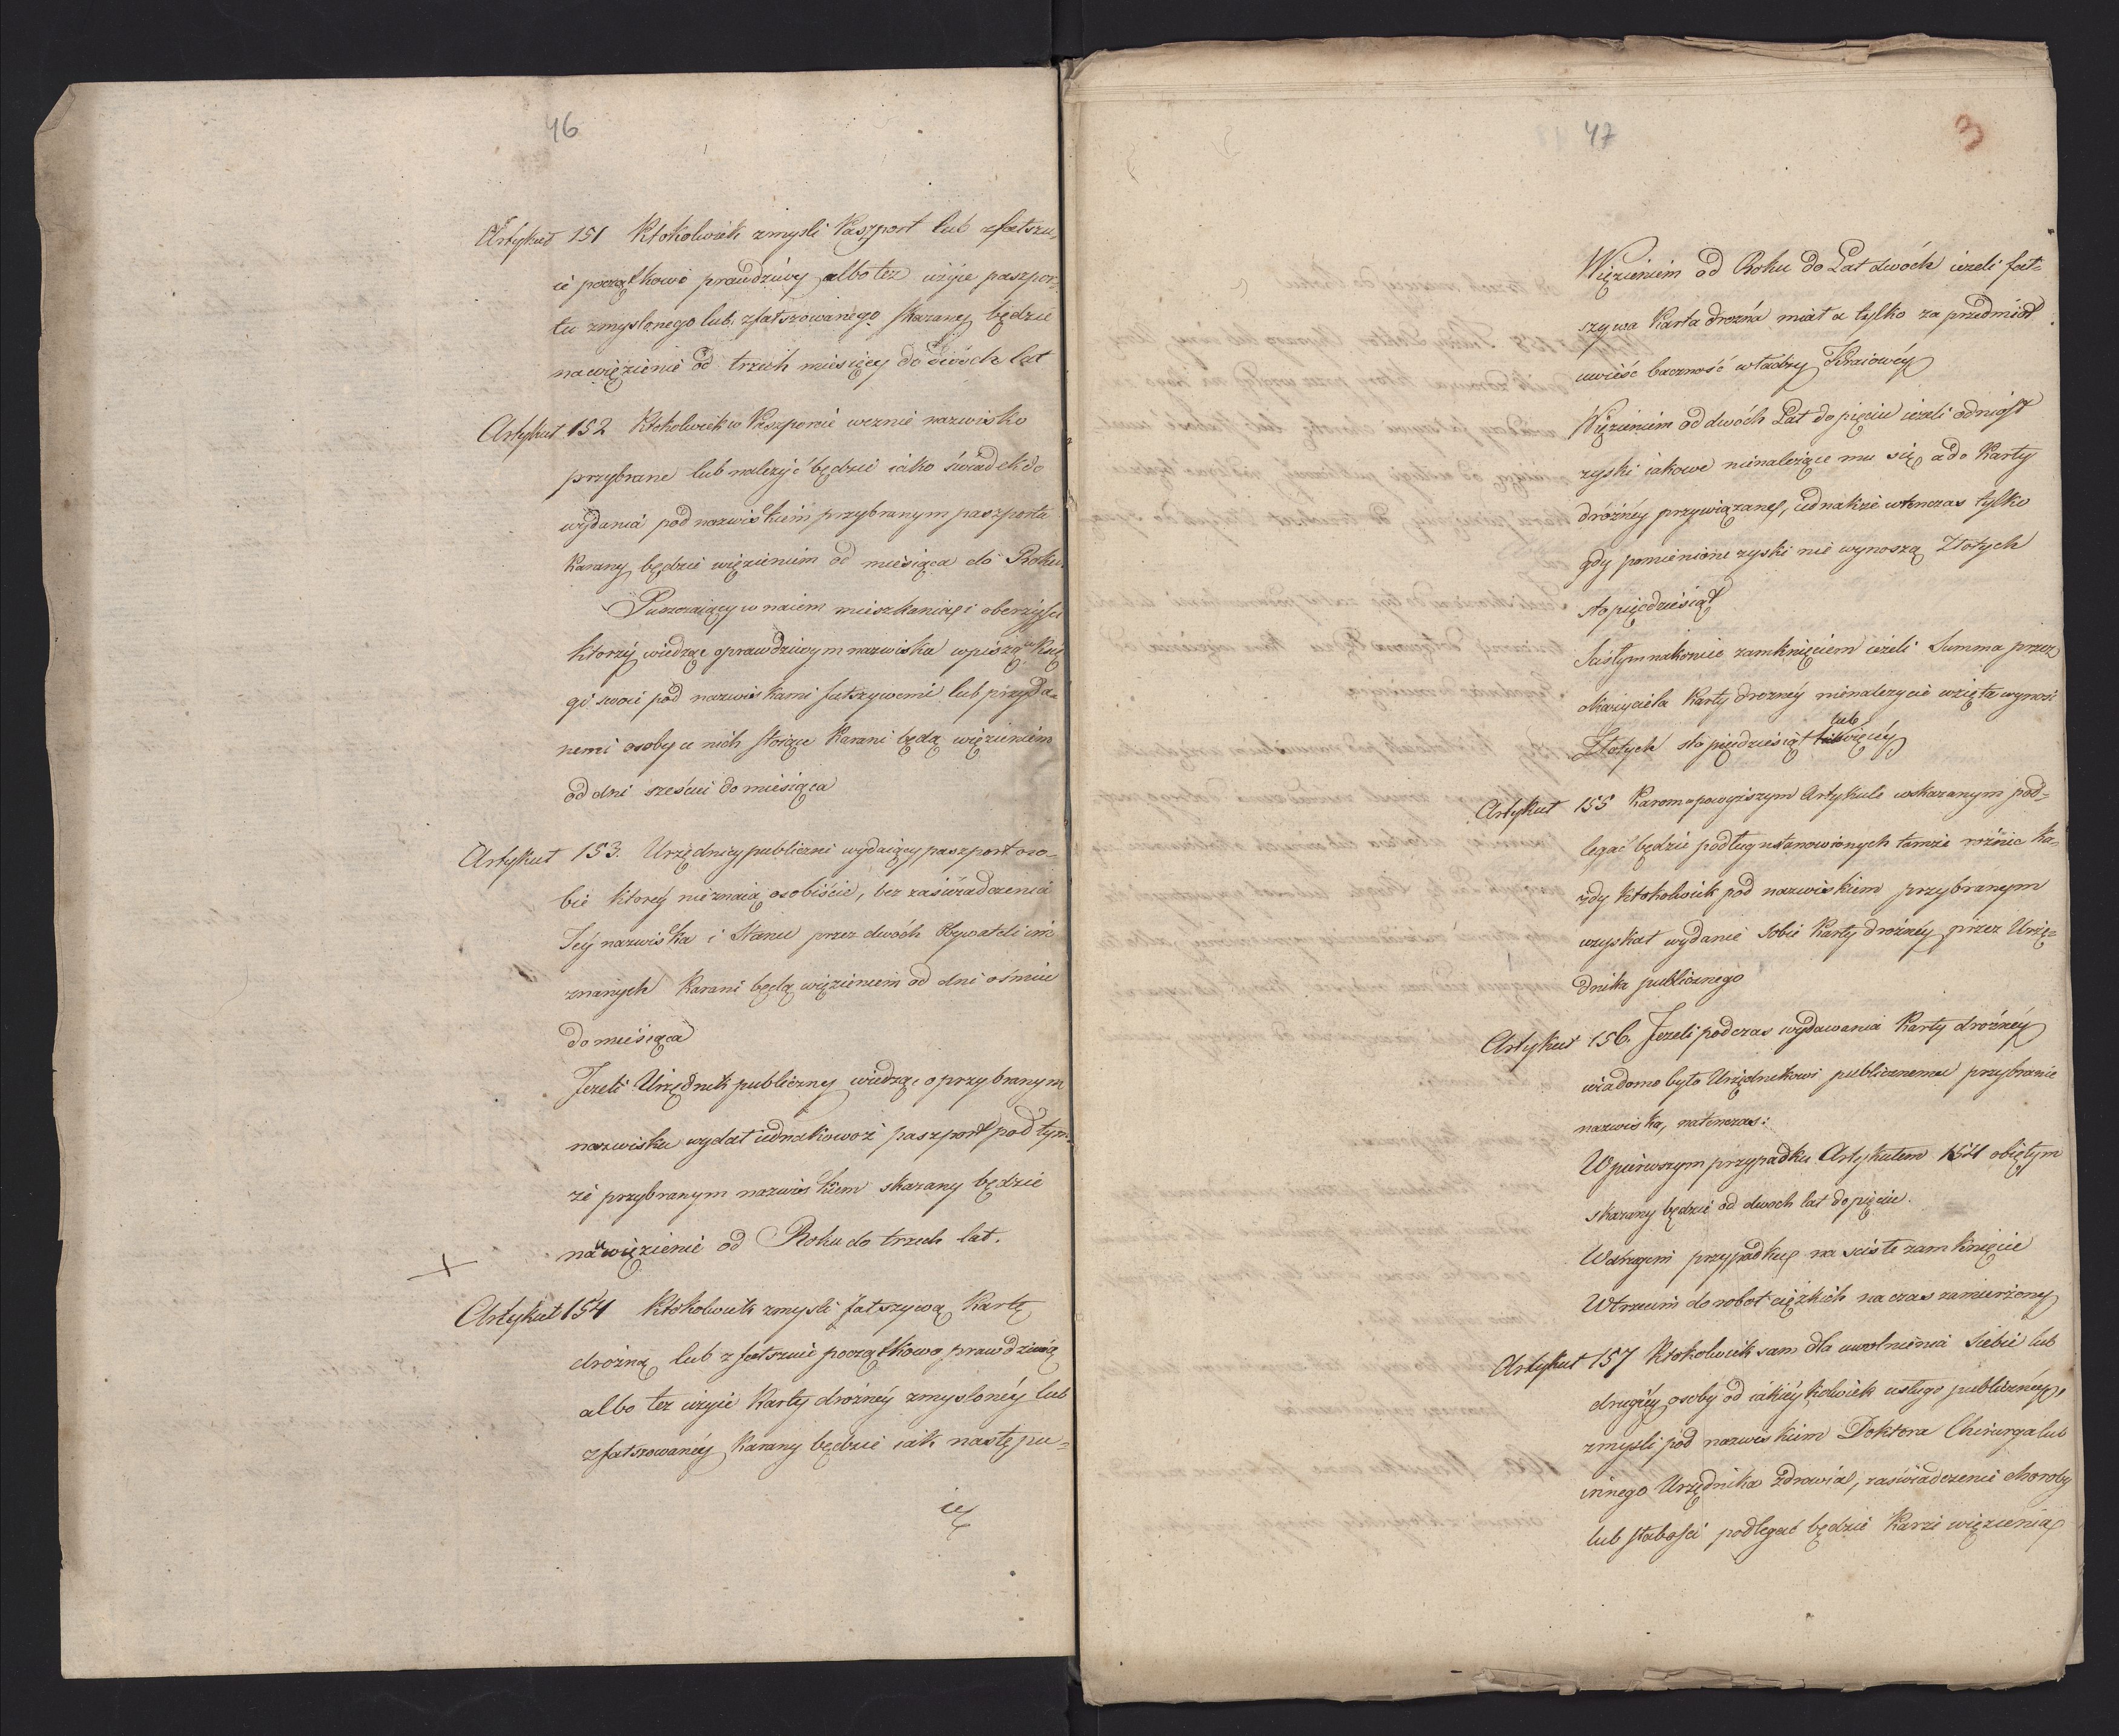 46
Artykuł 151 Ktokolwiek zmysli Paszport lub zfałszu-
ie początkowo prawdziwy albo tez użyie paszpor-
tu zmyslonego lub zfałszowanego skazany będzie
na więzienie od trzech miesięcy do dwóch lat
Artykuł 152 Ktokolwiek w Paszporcie wezmie nazwisko
przybrane lub należyć będzie iako świadek do
wydania pod nazwiskiem przybranym paszportu
karany będzie więzieniem od miesiąca do Roku.
Puszczaiący w naiem mieszkanie i oberzyści
ktorzy wiedząc o prawdziwym nazwisku wpiszą w Xię
gi swoie pod nazwiskami fałszywemi lub przyda-
nemi osoby u nich stoiące karani będą więzieniem
od dni sześciu do miesiąca
Artykuł 153. Urzędnicy publiczni wydaiący paszport oso-
bie ktorey nieznaią osobiście, bez zaświadczenia
Jey nazwiska i Stanu przez dwóch Obywateli im
znanych karani będą więzieniem od dni ośmiu
do miesiąca
Jezeli Urzędnik publiczny wiedząc o przybranym
nazwisku wydał iednakowoż paszport pod tym-
że przybranym nazwiskiem skazany będzie
na więzienie od Roku do trzech lat.
Artykuł 154 Ktokolwiek zmysli fałszywą Kartę
drożną lub zfałszuie początkowo prawdziwą
albo tez użyie Karty drożnéy zmyslonéy lub
zfałszowanéy karany będzie iak następu-
ie
47
3
Więzieniem od Roku do Lat dwóch ieżeli fał-
szywa Karta drożna miała tylko za przedmiot
uwieść baczność władzy Kraiowéy
Więzieniem od dwóch Lat do pięciu ieżeli odniósł
zyski iakowe nienależące mu się a do Karty
dróżnéy przywiązane, iednakże wtenczas tylko
gdy pomienione zyski nie wynoszą Złotych
sto pięcdziesiąt
Scisłym nakoniec zamknięciem ieżeli Summa przez
okaziciela Karty drożnéy nienależycie wzięta wynosi
Złotych sto pięcdziesiąt lub więcéy
Artykuł 155 Karom w powyższym Artykule wskazanym pod-
legać będzie podług ustanowionych tamże różnic ka-
żdy ktokolwiek pod nazwiskiem przybranym
uzyskał wydanie sobie Karty dróżnéy przez Urzę-
dnika publicznego
Artykuł 156. Jezeli podczas wydawania Karty dróżnéy
wiadomo było Urzędnikowi publicznemu przybranie
nazwiska, natenczas:
W pierwszym przypadku Artykułem 154 obiętym
skazany będzie od dwoch lat do pięciu.
W drugim przypadku na scisłe zamknięcie
W trzecim do robot ciężkich na czas zamierzony
Artykuł 157 Ktokolwiek sam dla uwolnienia siebie lub
drugiéy osoby od iakiéykolwiek usługi publicznéy,
zmysli pod nazwiskiem Doktora Chirurga lub
innego Urzędnika Zdrowia, zaświadczenie choroby
lub słabości podlegać będzie karze więzienia